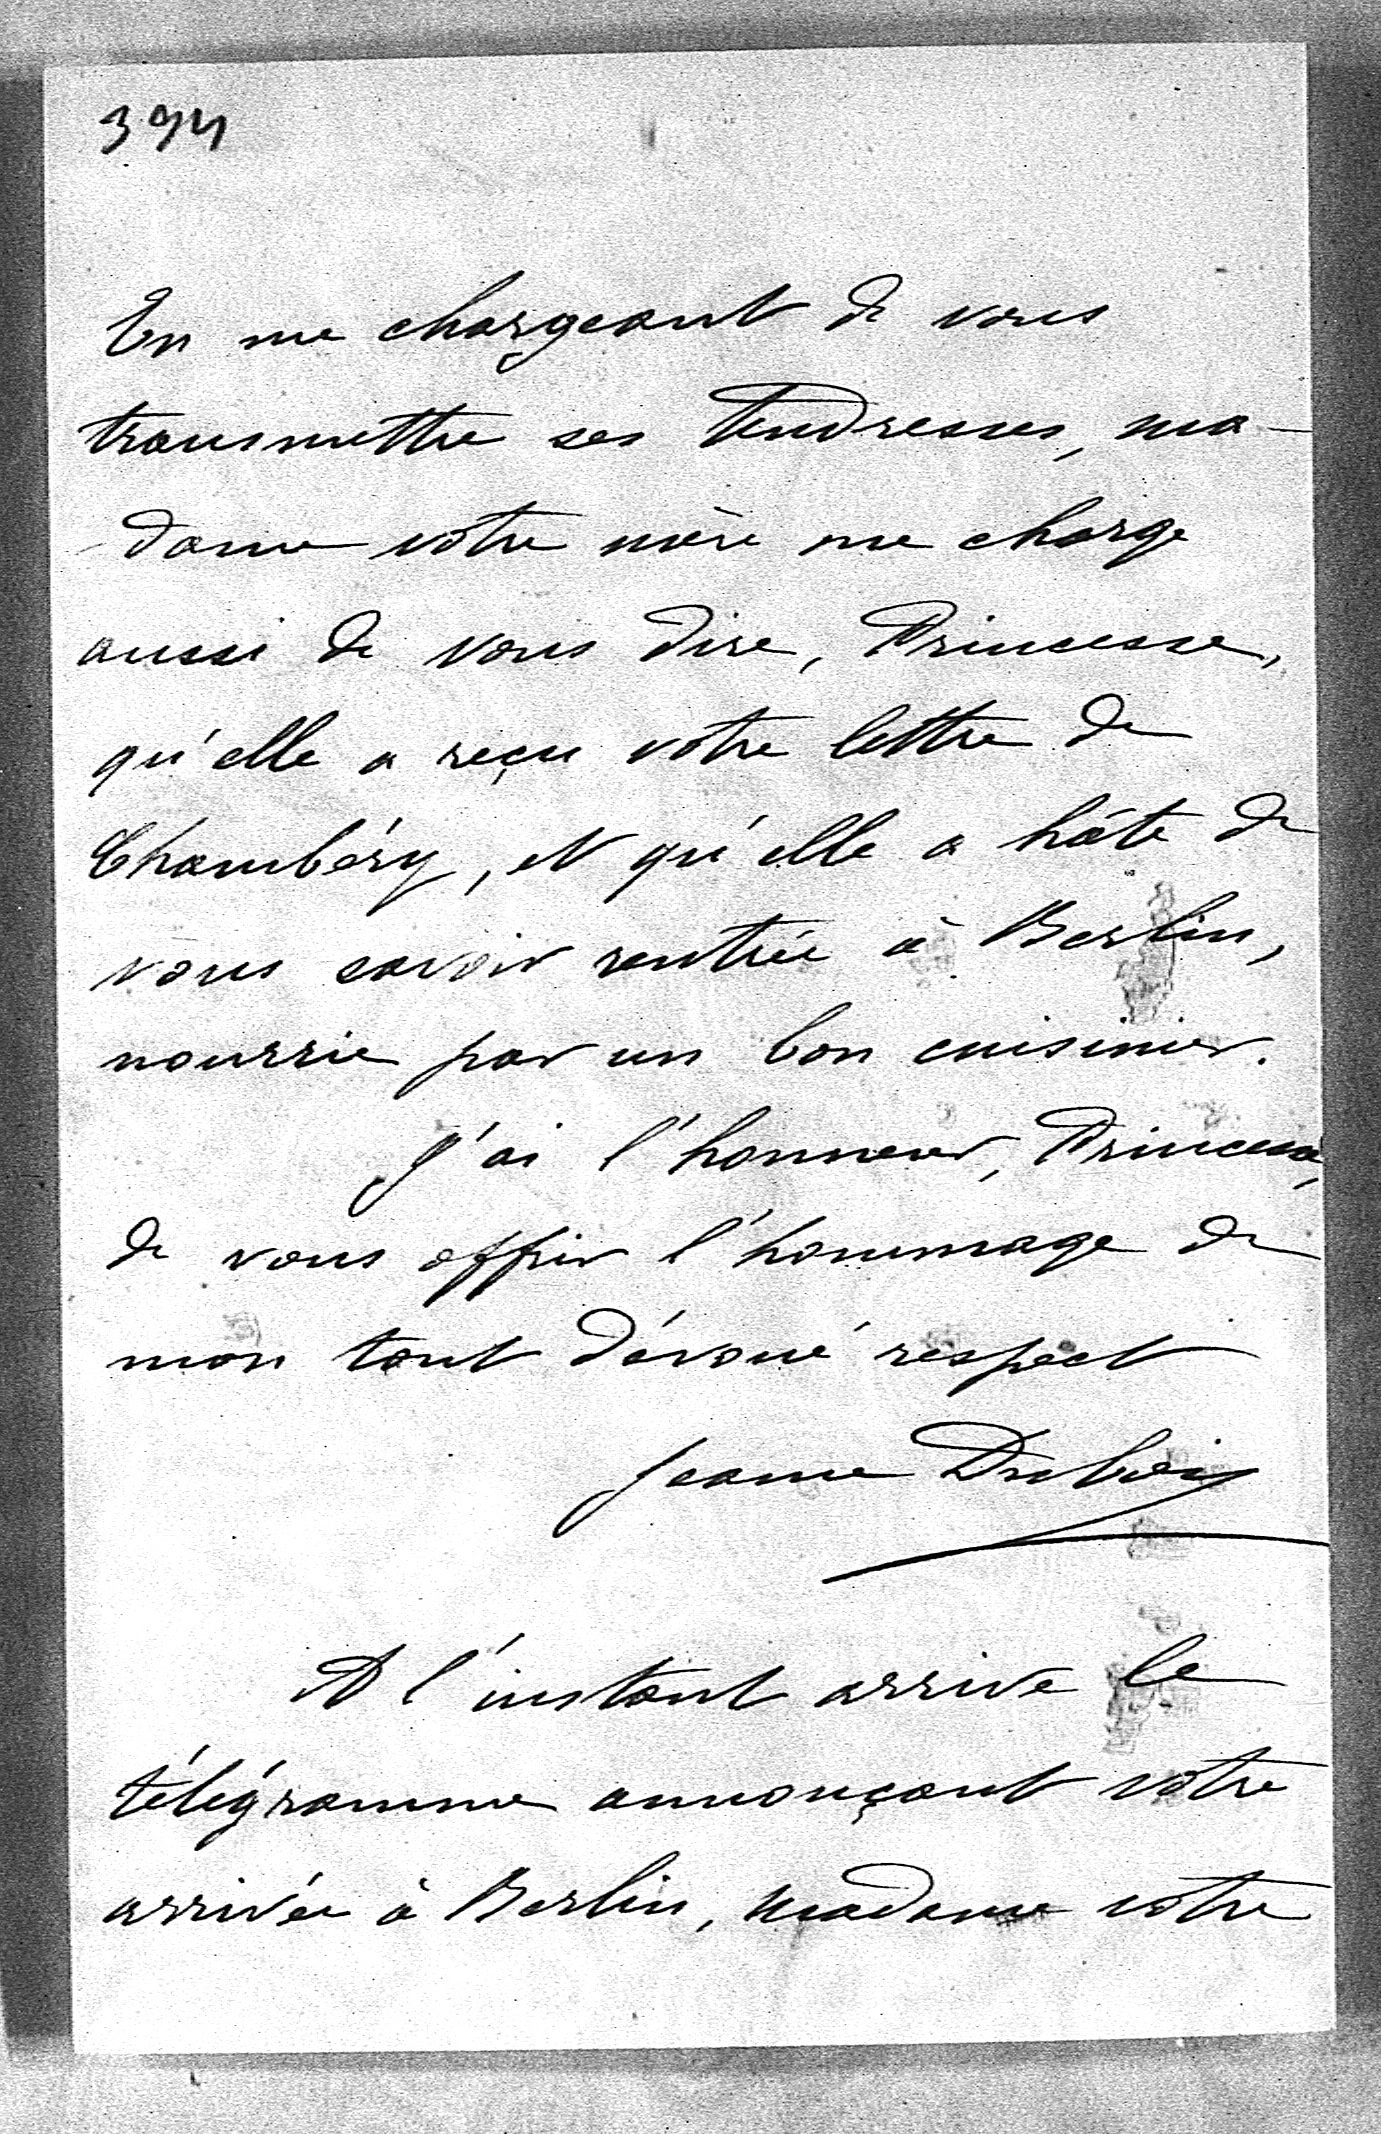 394
En me chargeant de vous
transmettre ses tendresses, ma-
dame votre mère me charge
aussi de vous dire, Princesse,
qu'elle a reçu votre lettre de
Chambéry, et qu'elle a hâte de
vous savoir rentrée à Berlin,
nourrie par un bon cuisinier.
J'ai l'honneur, Princesse,
de vous offrir l'hommage de
mon tout dévoué respect
Jeanne Dubois
A l'instant arrive le
télégramme annonçant votre
arrivée à Berlin, madame votre